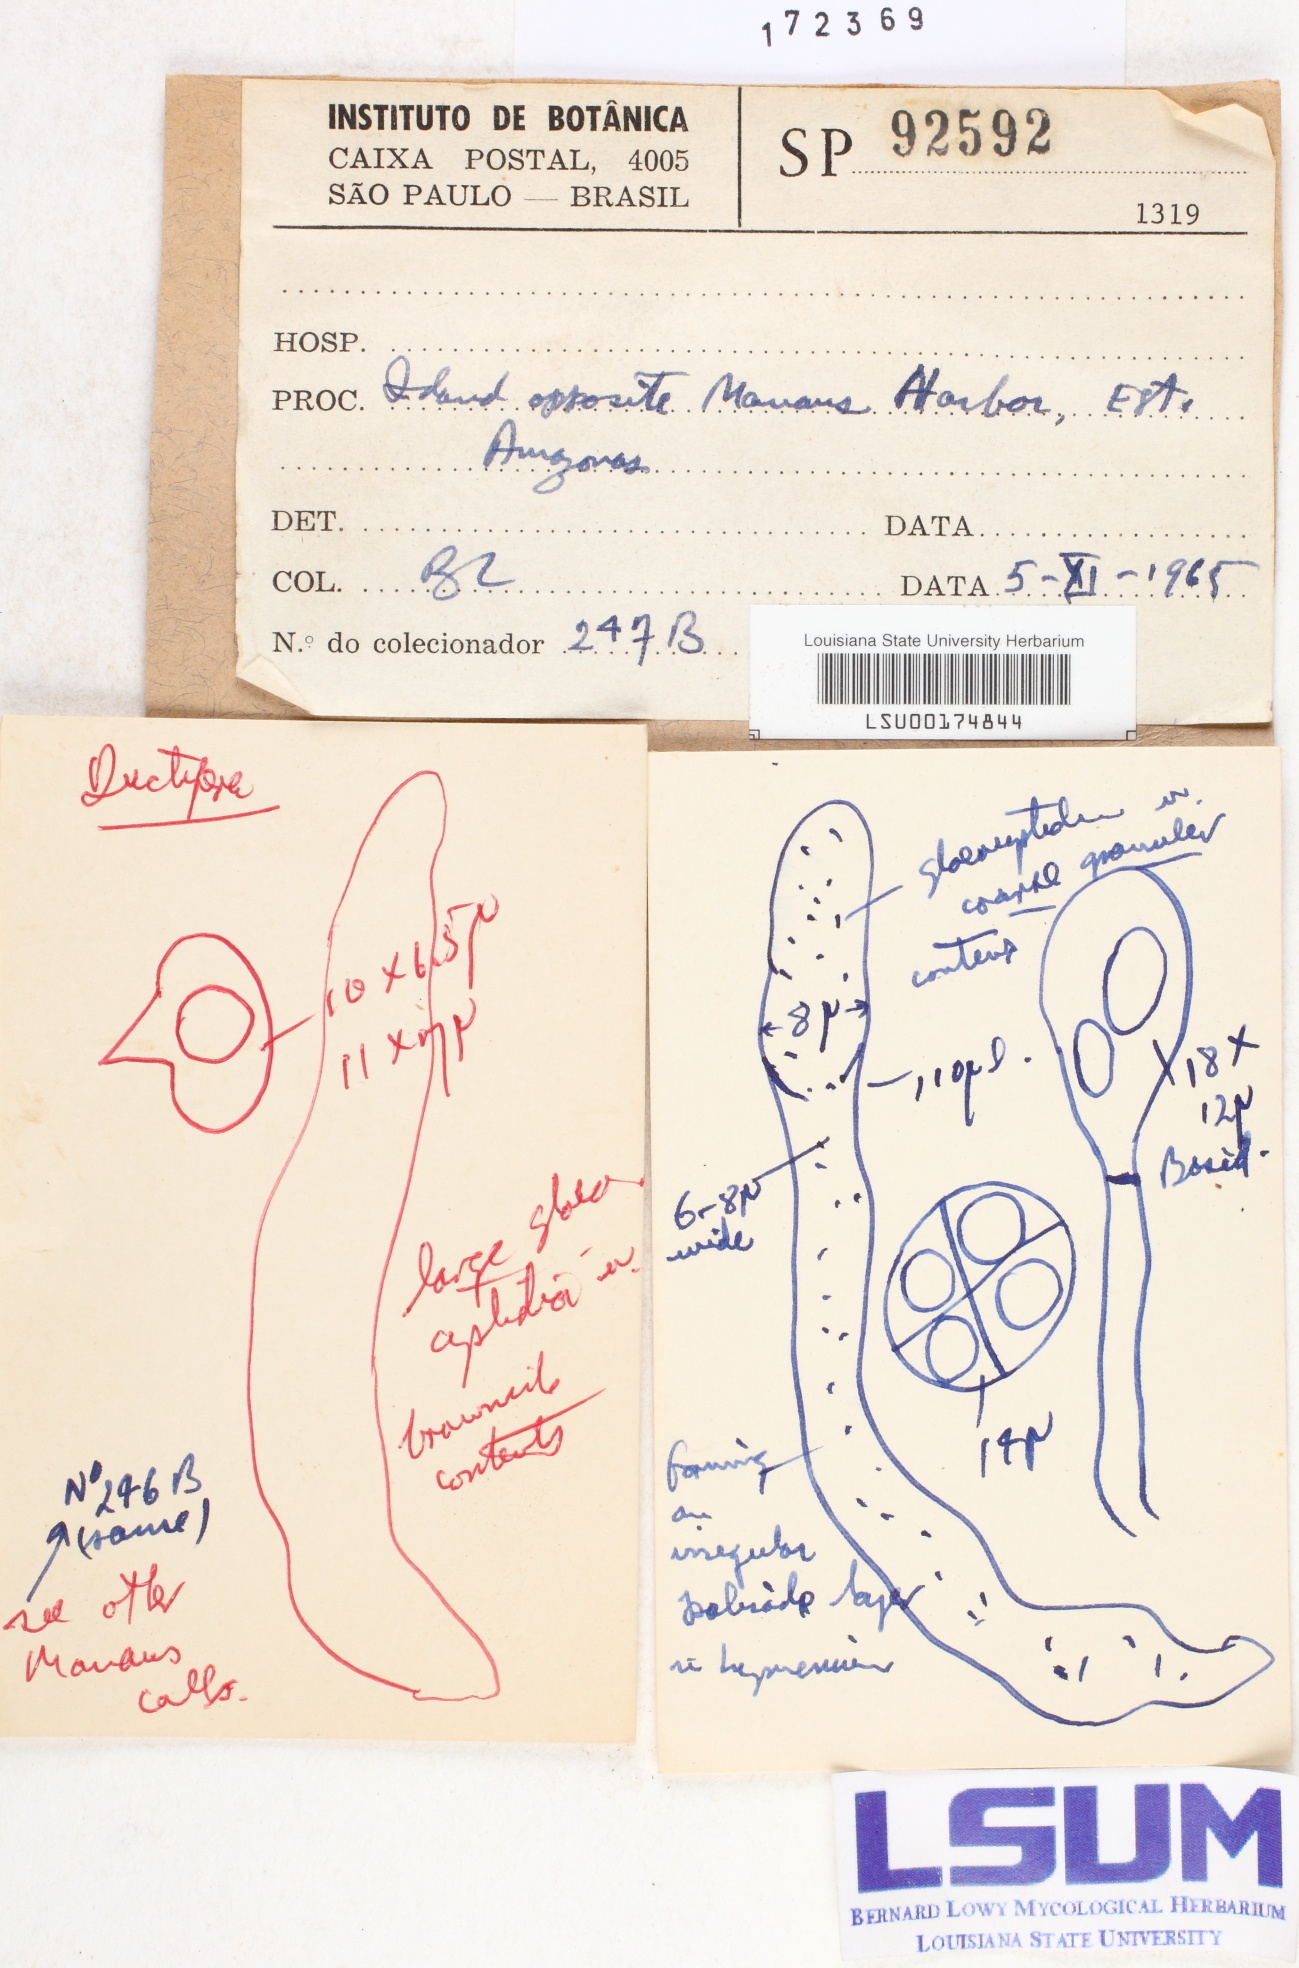 172369
INSTITUTO DE BOTÂNICA
CAIXA POSTAL, 4005
SÃO PAULO — BRASIL
SP 92592
1319
HOSP.
PROC. Island opposite Manaus Harbor, Est.
Amazonas
DET. DATA
COL. BL DATA 5-XI-1965
N.º do colecionador 247B
Louisiana State University Herbarium
LSU00174844
Ductifera
10 x 6.5μ
11 x 7μ
large gloeo
cystidia
contents
Nº 246 B
(same)
see other
Manaus
colls.
gloeocystidium
coarse granular
content
8μ
110μ l.
6-8μ
wide
18 x
12μ
Basid.
14μ
forming
an
irregular
palisade layer
in hymenium
LSUM
BERNARD LOWY MYCOLOGICAL HERBARIUM
LOUISIANA STATE UNIVERSITY